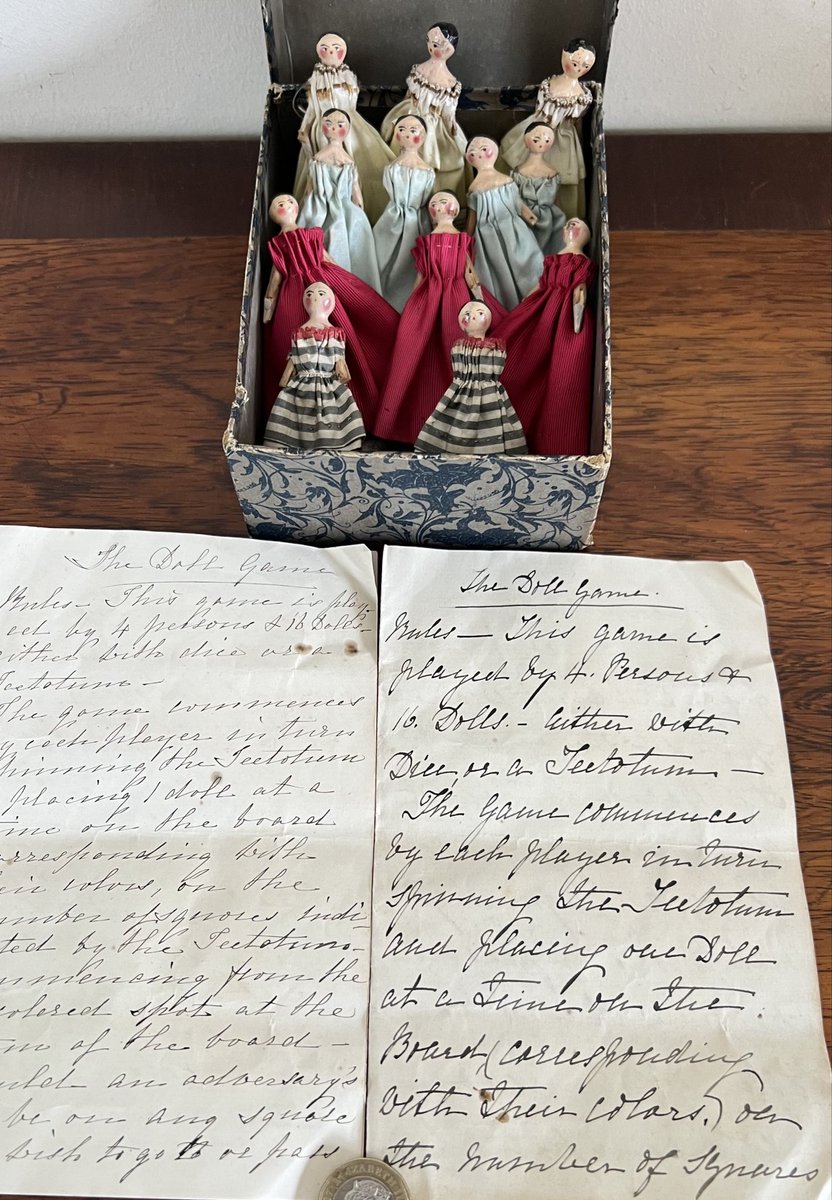 The Doll Game
Rules – This game is play-
ed by 4 persons & 16 Dolls –
either with dice or a
Teetotum –
The game commences
y each player in turn
pinning the Teetotum
placing 1 doll at a
ime on the board
orresponding with
eir colors, on the
umber of squares indi-
ted by the Teetotum –
mmencing from the
olored spot at the
of the board –
uld an adversary's
be on any square
wish to go to or pass
The Doll Game.
Rules – This game is
played by 4. Persons &
16. Dolls. – Either with
Dice, or a Teetotum –
The Game commences
by each player in turn
spinning the Teetotum
and placing one Doll
at a time on the
Board, (corresponding
with their colors.) on
the number of Squares